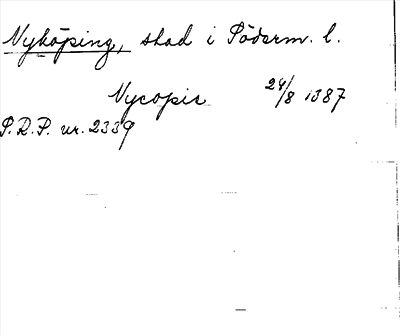 Nyköping, stad i Söderm. l.
Nycopie 24/8 1387
S.R.P. nr. 2339